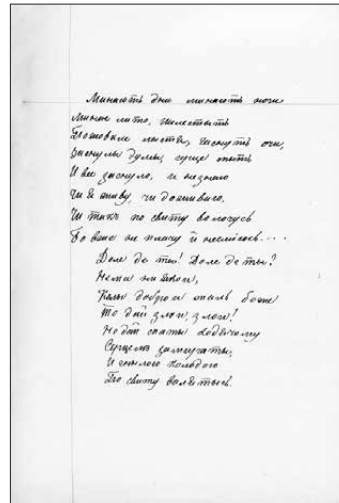 Минаютъ дни минаютъ ночи
Минае лито, шелестытъ
Пожовкле листя, гаснутъ очи,
Заснулы думы, серце спыть
И все заснуло, и незнаю
Чи я живу, чи доживаю,
Чи такъ по свиту волочусь
Бо вже не плачу й несміюсь....
Доле де ты! Доле де ты?
Нема ніякои,
Коли доброи жаль боже
То дай злои, злои!
Не дай спаты ходячому
Серцемъ замираты,
И гнылою колодою
По свиту валятысь.